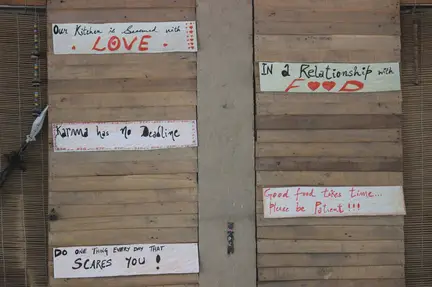 Our Kitchen is Seasoned with
LOVE
Karma has no Deadline
Do one thing every day that
SCARES YOU !
In a Relationship with
FOOD
Good food takes time...
Please be Patient !!!